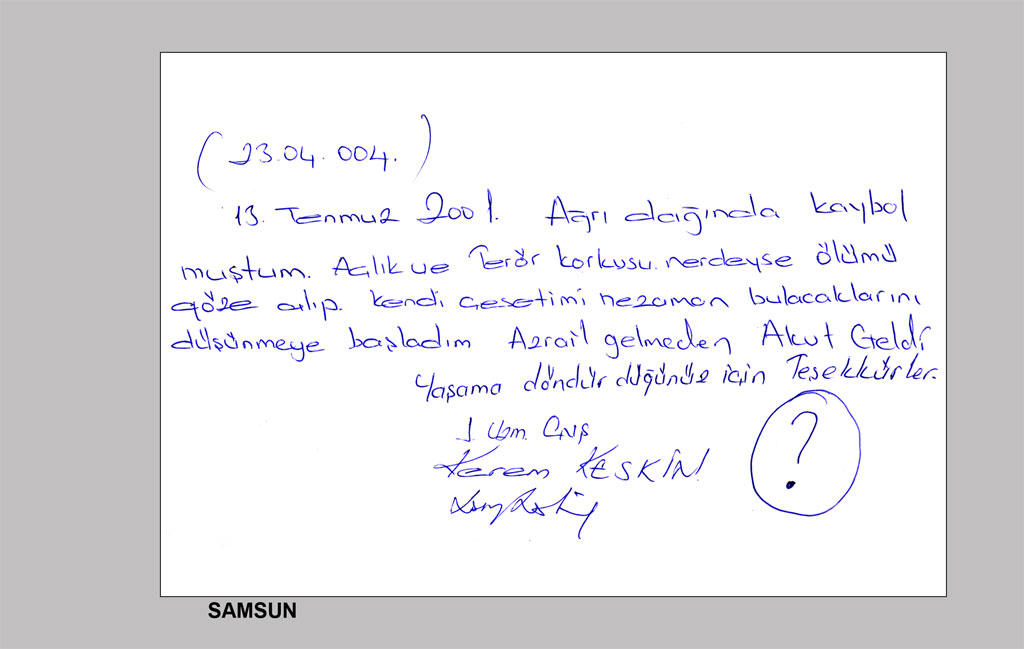 (23.04.004.)
13. Temmuz 2001. Ağrı dağında kaybol
muştum. Açlık ve Terör korkusu. nerdeyse ölümü
göze alıp. kendi cesetimi nezaman bulacaklarını
düşünmeye başladım Azrail gelmeden Akut Geldi
Yaşama döndür düğünüz için Teşekkürler.
J. Uzm. Çvş
Kerem KESKİN!
?
SAMSUN